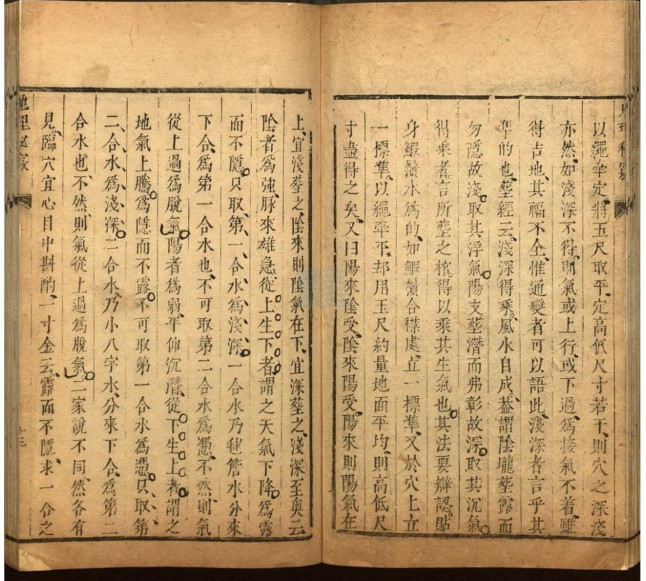 以繩牽定將五尺取平定高低尺寸若干則穴之深淺
亦然如淺深不得則氣或上行或下過為接氣不着雖
得吉地其福不全惟通變者可以語此淺深者言乎其
準的也葬經云淺深得乘風水自成葢謂陰壠葬露而
勿隱故淺取其浮氣陽支葬潛而弗彰故深取其沉氣
得來者言所葬之棺得以乘其生氣也其法要辯認貼
身蝦鬚水為的如蝦鬚合襟處一標準又於穴上立
一標準以繩牽平却用五尺約量地面平均則高低尺
寸盡得之矣又曰陽來陰受陰來陽受陽來則陽氣在
上宜淺葬之陰來則陰氣在下宜深葬之淺深至奧云
陰者為強脉來雄急從上生下者謂之天氣下降為露
而不隱只取第一合水為淺深一合水乃毬簷水分來
下合為第一合水也不可取第二合水為憑不然則氣
從上過為脫氣陽者為弱平仰沉潛從下生上者謂之
地氣上騰為隱而不露不可取第一合水為憑只取第
二合水為淺深二合水乃小八字水分來下合為第二
合水也不然則氣從上過為脫氣二家說不同然各有
見臨穴宜心目中斟酌一寸金云露而不隱求一合之
地理